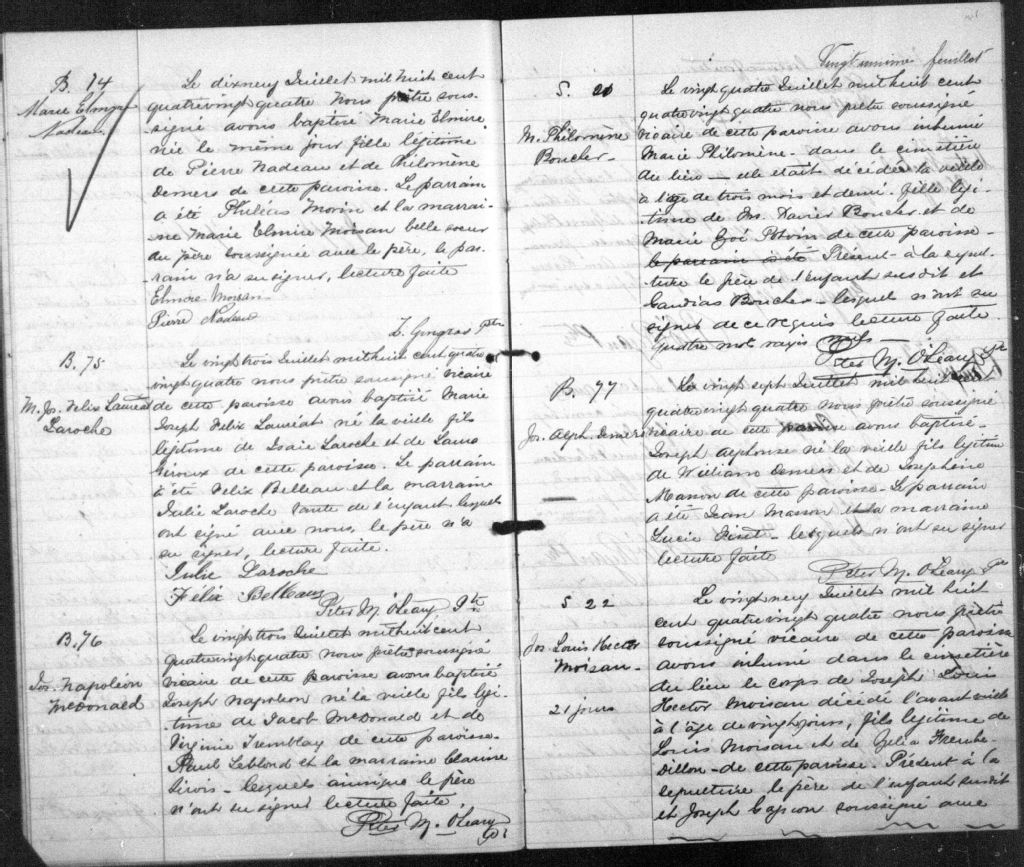 B. 74
Marie Elmire
Nadeau
Le dixneuf Juillet mil huit cent
quatrevingt quatre nous prêtre sous-
signé avons baptisé Marie Elmire
née le même jour fille légitime
de Pierre Nadeau et de Philomène
Demers de cette paroisse. Le parrain
a été Philéas Morin et la marrai-
ne Marie Elmire Moisan belle soeur
du père soussignée avec le père, le par-
rain n'a su signer, lecture faite
Elmire Moisan
Pierre Nadeau
Z. Gingras Ptre
B. 75
M. Jos. Felix Lauréat
Laroche
Le vingt trois Juillet mil huit cent quatre
vingt quatre nous prêtre soussigné vicaire
de cette paroisse avons baptisé Marie
Joseph Felix Lauréat né la vieille fils
légitime de Isaie Laroche et de Laure
Giroux de cette paroisse. Le parrain
a été Felix Belleau et la marraine
Julie Laroche tante de l'enfant lesquels
ont signé avec nous, le père n'a
su signer, lecture faite.
Julie Laroche
Félix Belleau
Peter M. O'Leary Ptre
B. 76
Jos. Napoléon
McDonald
Le vingt trois Juillet mil huit cent
quatrevingt quatre nous prêtre soussigné
vicaire de cette paroisse avons baptisé
Joseph Napoleon né la vieille fils légi-
time de Jacob McDonald et de
Virginie Tremblay de cette paroisse.
Paul Leblond et la marraine Clarine
Sirois - lesquels ainsi que le père
n'ont su signer lecture faite.
Peter M. O'Leary
Vingt unième feuillet
S. 21
M. Philomène
Boucher
Le vingt quatre Juillet mil huit cent
quatre vingt quatre nous prêtre soussigné
vicaire de cette paroisse avons inhumé
Marie Philomène - dans le cimetière
du lieu - elle était décédée la vieille
à l'âge de trois mois et demi. fille légi-
time de Xavier Boucher et de
Marie Zoé Potvin de cette paroisse -
le parrain a été Présent - à la sépul-
ture le père de l'enfant susdit et
Gaudias Boucher - lesquels n'ont su
signer de ce requis lecture faite.
quatre mots rayés nuls
Peter M. O'Leary Ptr
B. 77
Jos. Alph. Demers
Le vingt sept Juillet mil huit cent
quatre vingt quatre nous prêtre soussigné
vicaire de cette paroisse avons baptisé -
Joseph alphonse né la vieille fils légitime
de William Demers et de Josephine
Masson de cette paroisse - Le parrain
a été Jean Masson et la marraine
Lucie - lesquels n'ont su signer
lecture faite
Peter M. O'Leary Ptre
S 22
Jos Louis Hector
Moisan -
21 jours
Le vingt neuf Juillet mil huit
cent quatre vingt quatre nous prêtre
soussigné vicaire de cette paroisse
avons inhumé dans le cimetière
du lieu le corps de Joseph Louis
Hector Moisan décédé l'avant vieille
à l'âge de vingt jours, fils légitime de
Louis Moisan et de Zélia
Dillon - de cette paroisse. Présent à la
sépulture le père de l'enfant susdit
et Joseph soussigné avec